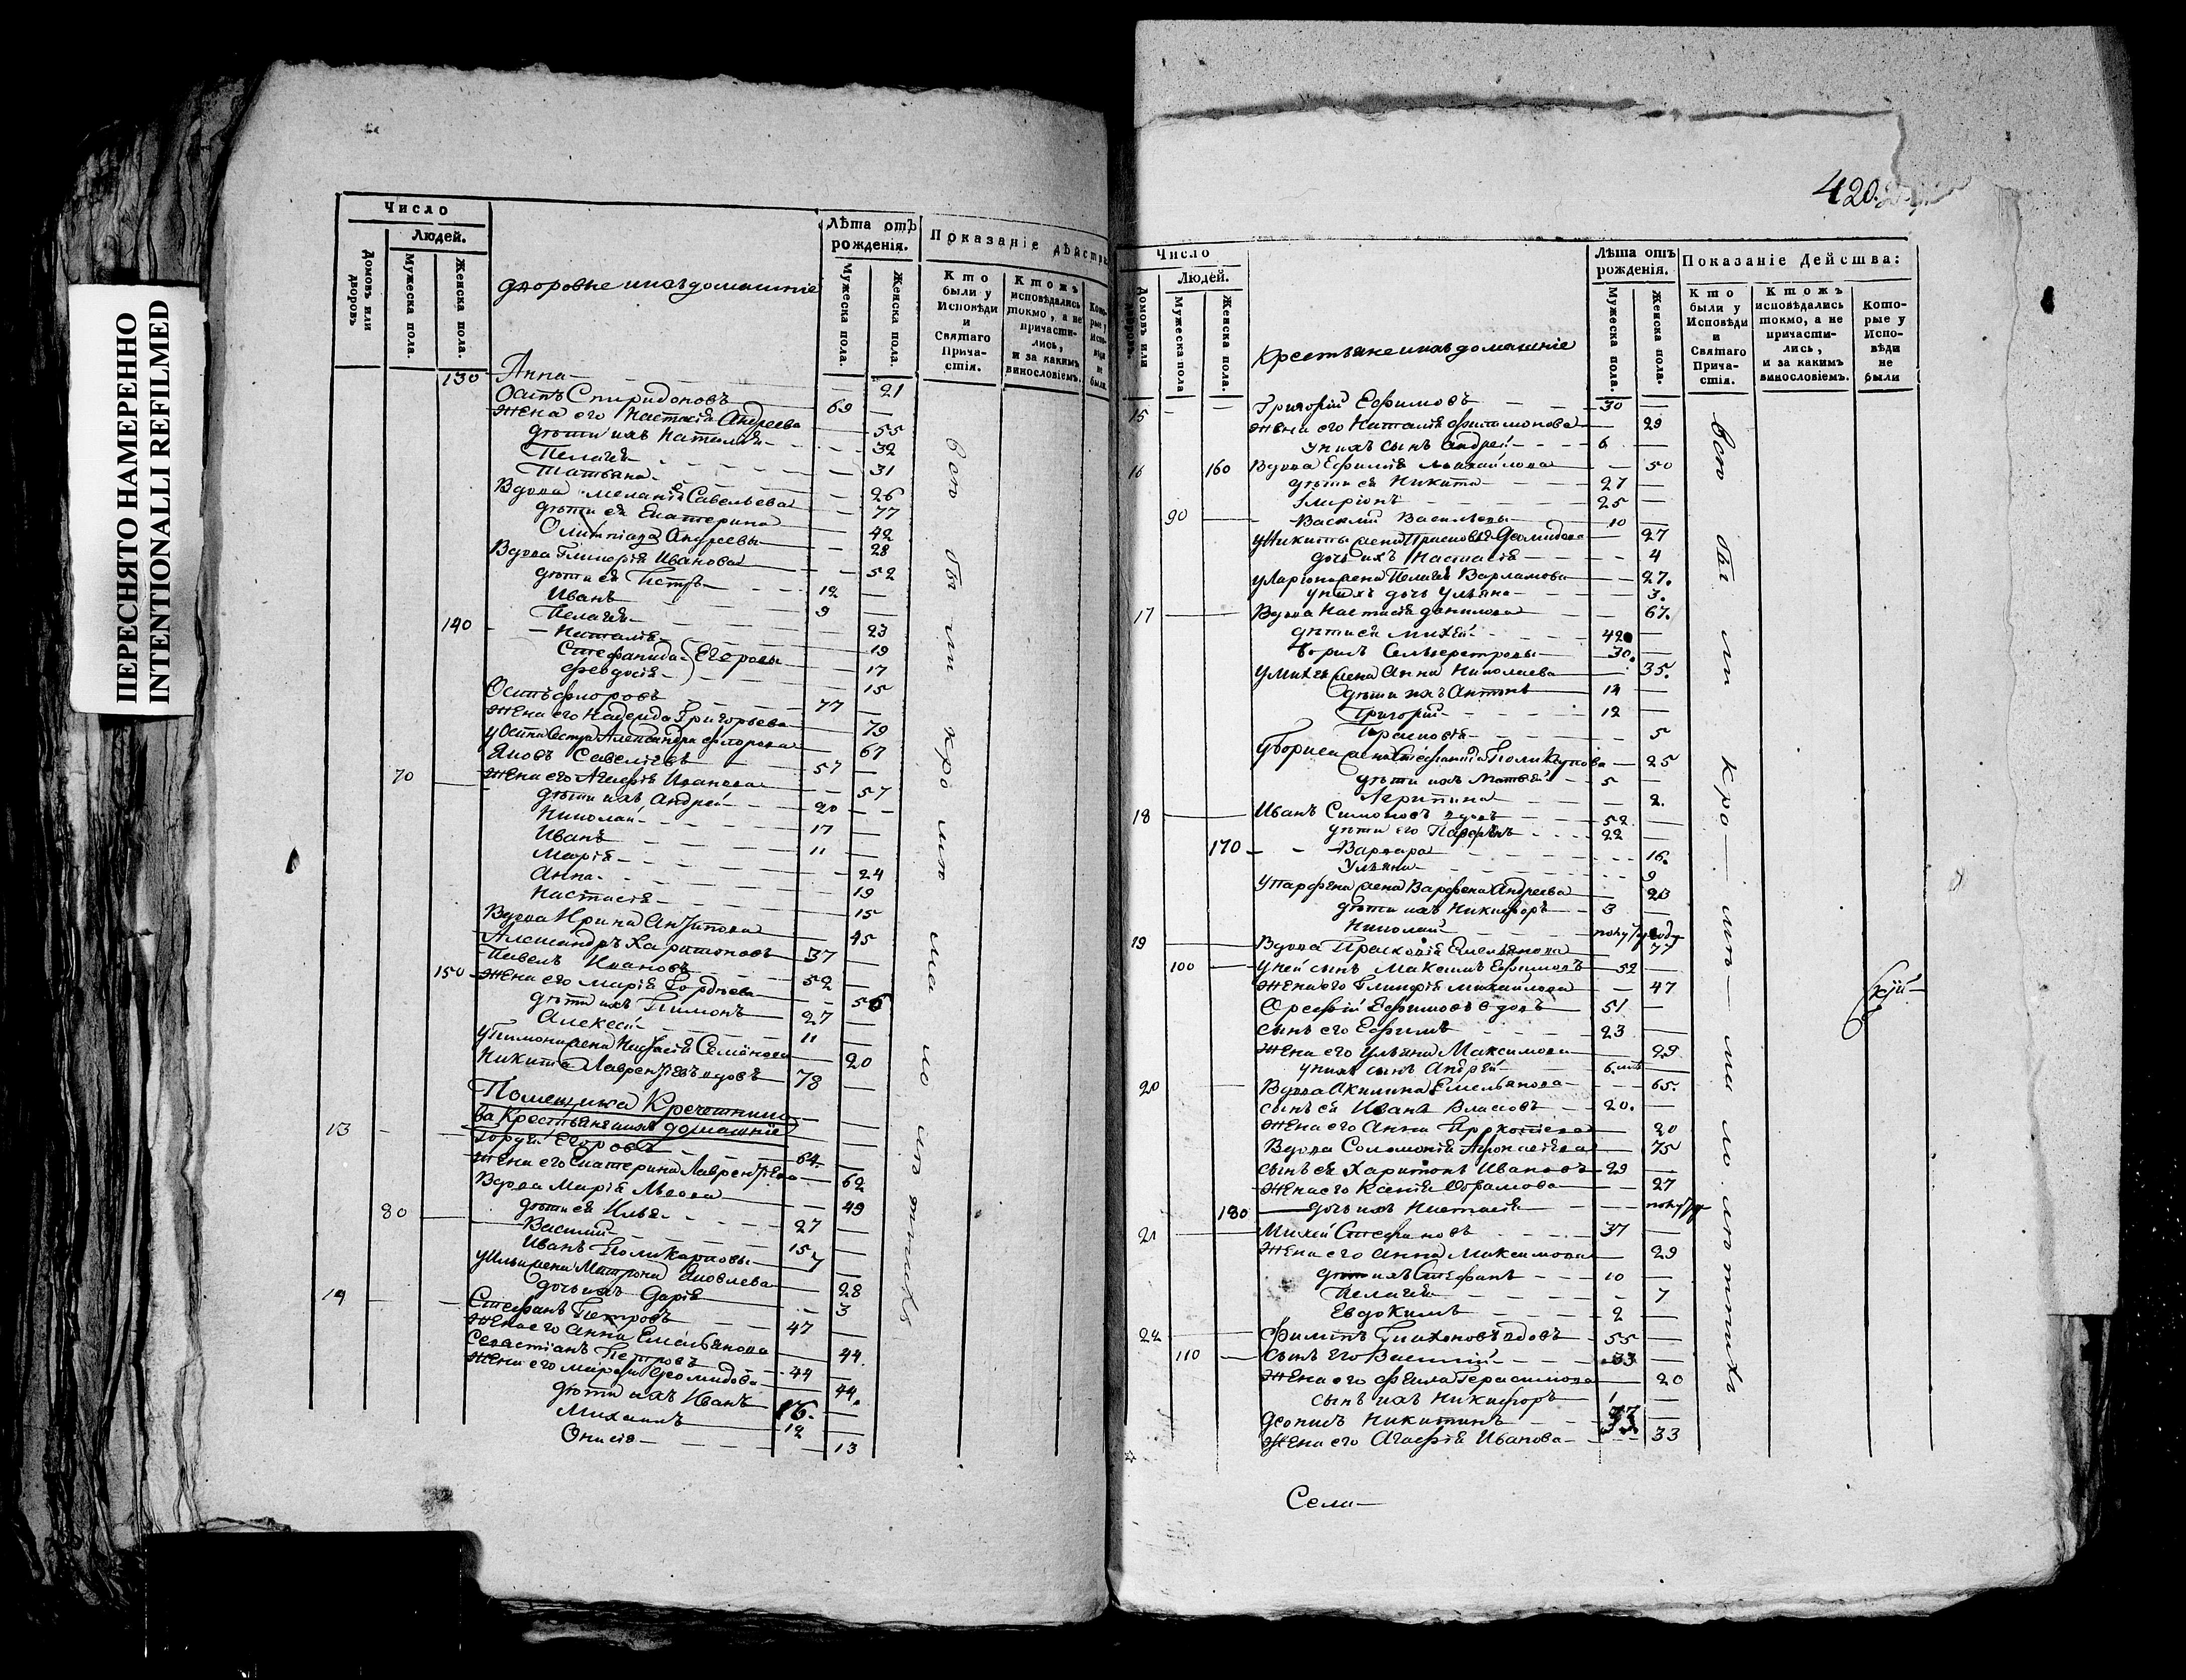 ПЕРЕСНЯТО НАМЕРЕННО
INTENTIONALLI REFILMED
Число
Людей.
Домовъ или дворовъ
Мужеска пола.
Женска пола.
дворовые и ихъ домашніе
Лѣта отъ рожденія.
Мужеска пола.
Женска пола.
Показаніе дѣйства
Кто были у Исповѣди и Святаго Причастія.
Ктожъ исповѣдались токмо, а не причастились, и за какимъ винословіемъ.
Которые у Исповѣди не были.
130 Анна 21
Осипъ Спиридоновъ 69
Жена его Настасія Андреева 55
дѣти ихъ Наталія 32
Пелагея 31
Татьяна 26
Вдова Меланія Савельева 77
дѣти ея Екатерина 42
Олимпіада Андреевы 28
Вдова Гликерія Иванова 52
дѣти ея Петръ 12
Иванъ 9
Пелагея 23
140 Наталія 19
Стефанида Егоровы 17
Феодосія 15
Осипъ Флоровъ 77
Жена его Надежда Григорьева 79
у Осипа сестра Александра Флорова 67
Яковъ Савельевъ 57
70 Жена его Агафія Иванова 57
дѣти ихъ Андрей 20
Николай 17
Иванъ 11
Марія 24
Анна 19
Настасія 15
Вдова Ирина Антипова 45
Александръ Харитоновъ 37
Павелъ Ивановъ 52
150 Жена его Марія Гордѣева 56
дѣти ихъ Пимонъ 27
Алексей 11
у Пимона жена Настасія Семёнова 20
Никита Лаврентіевъ вдовъ 78
Помещика Кречетникова Крестьяне и ихъ домашніе
13 Гордей Егоровъ 64
Жена его Екатерина Лаврентіева 62
Вдова Марія Львова 49
дѣти ея Илья 27
80 Василий 15
Иванъ Поликарповы 7
у Ильи жена Матрона Яковлева 28
дочь ихъ Дарія 3
14 Стефанъ Петровъ 47
Жена его Анна Емельянова 44
Севастіанъ Петровъ 44
Жена его Марфа Діомидова 44
дѣти ихъ Иванъ 16
Михаилъ 12
Онисія 13
всѣ были кромѣ малолѣтнихъ
420
Число
Людей.
Домовъ или дворовъ.
Мужеска пола
Женска пола.
Крестьяне и ихъ домашніе
Лѣта отъ рожденія.
Мужеска пола.
Женска пола.
Показаніе Действа:
Кто были у Исповѣди и Святаго Причастія.
Ктожъ исповѣдались токмо, а не причастились, и за какимъ винословіемъ.
Которые у Исповѣди не были
15 Григорій Ефимовъ 30
Жена его Наталія Филимонова 29
у нихъ сынъ Андрей 6
16 160 Вдова Ефимія Михайлова 50
дѣти ея Никита 27
Иларіонъ 25
90 Василий Васильевы 10
у Никиты жена Прасковья Діомидова 27
дочь ихъ Настасія 4
у Ларіона жена Пелагея Варламова 27
у нихъ дочь Ульяна 3
17 Вдова Настасія Данилова 67
дѣти ея Михей 42
Борисъ Сельвестровы 30
у Михея жена Анна Николаева 35
дѣти ихъ Антонъ 14
Григорій 12
Прасковія 5
у Бориса жена Стефанида Поликарпова 25
дѣти ихъ Матвей 5
Агрипина 2
18 Иванъ Симоновъ вдовъ 52
дѣти его Парфенъ 22
170 Варвара 16
Ульяна 9
у Парфена жена Варфена Андреева 20
дѣти ихъ Никифоръ 3
Николай полугоду
19 Вдова Прасковія Емельянова 77
100 у ней сынъ Максимъ Ефимовъ 52
Жена его Гликерія Михайлова 47
Орефій Ефимовъ вдовъ 51
сынъ его Ефимъ 23
Жена его Ульяна Максимова 29
у нихъ сынъ Андрей
20 Вдова Акилина Емельянова 65
сынъ ея Иванъ Власовъ 20
Жена его Анна Прокопіева 20
Вдова Соломонія 75
сынъ ея Харитонъ Ивановъ 29
Жена его Ксенія 27
180 дочь ихъ Настасія
21 Михей Стефановъ 37
Жена его Анна Максимова 29
дѣти ихъ Стефанъ 10
Пелагея 7
Евдокимъ 2
22 Филипъ вдовъ 55
110 Сынъ его Василій 33
Жена его Фекла Герасимова 20
сынъ ихъ Никифоръ 1
Никитинъ 33
Жена его Агафія Иванова 33
всѣ были кромѣ малолѣтнихъ
Села